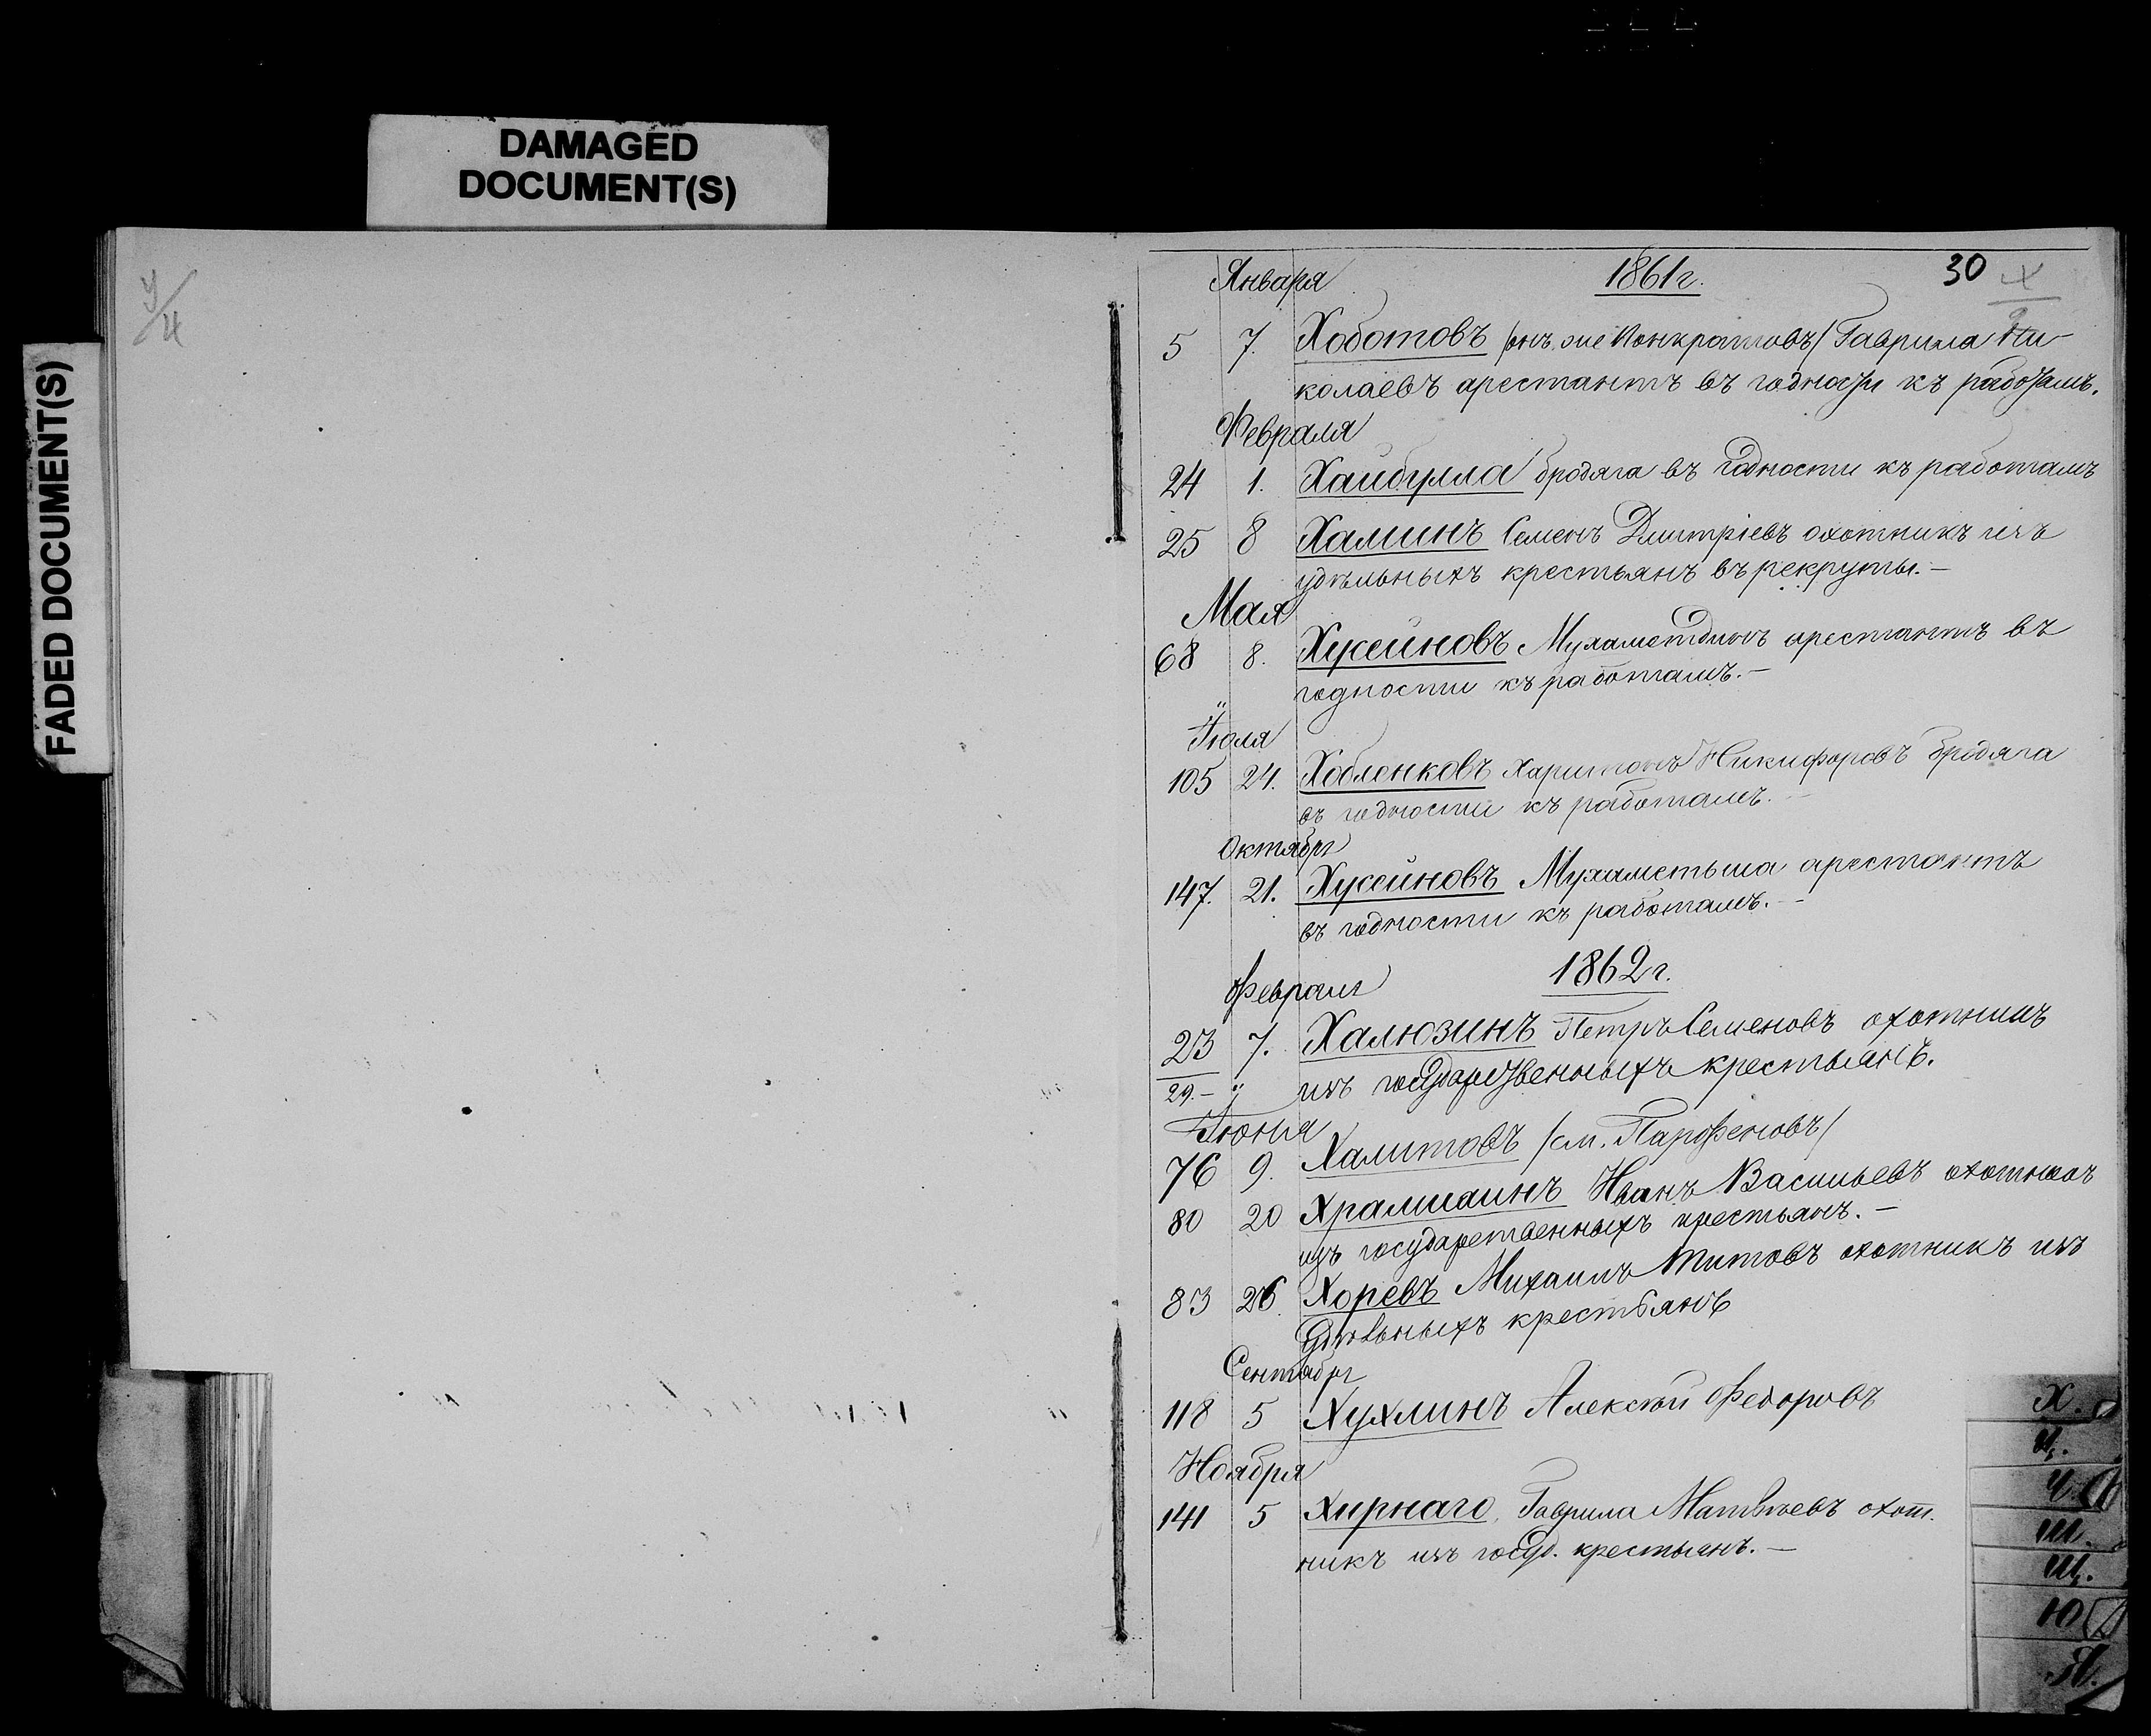 DAMAGED
DOCUMENT(S)
FADED DOCUMENT(S)
У/4
Января 1861 г. 30 Х
5 7. Хоботовъ /онъ же Понкратовъ/ Гаврила Ни-
колаевъ арестантъ въ годности къ работамъ.
Февраля
24 1. Хайбулла бродяга въ годности къ работамъ
25 8 Халинъ Семенъ Дмитріевъ охотникъ изъ
удѣльныхъ крестьянъ въ рекруты.—
Мая
68 8. Хусейновъ Мухаметдинъ арестантъ въ
годности къ работамъ.—
Іюля
105 24. Хобленковъ Харитонъ Никифоровъ бродяга
въ годности къ работамъ.—
Октября
147. 21. Хусейновъ Мухаметьша арестантъ
въ годности къ работамъ.—
1862 г.
Февраля
23 7. Халюзинъ Петръ Семеновъ охотникъ
29.– " изъ государственныхъ крестьянъ.
Іюня
76 9. Халитовъ /см. Парфеновъ/
80 20 Иванъ Васильевъ охотникъ
изъ государственныхъ крестьянъ.—
83 26. Хоревъ Михаилъ Титовъ охотникъ изъ
удѣльныхъ крестьянъ
Сентября
118 5 Хухлинъ Алексѣй Федоровъ
Ноября
141 5 Хирнаго Гаврила Матвѣевъ охот.
никъ изъ госуд. крестьянъ.—
Х.
Ц.
Ч.
Ш.
Щ.
Ю
Я.